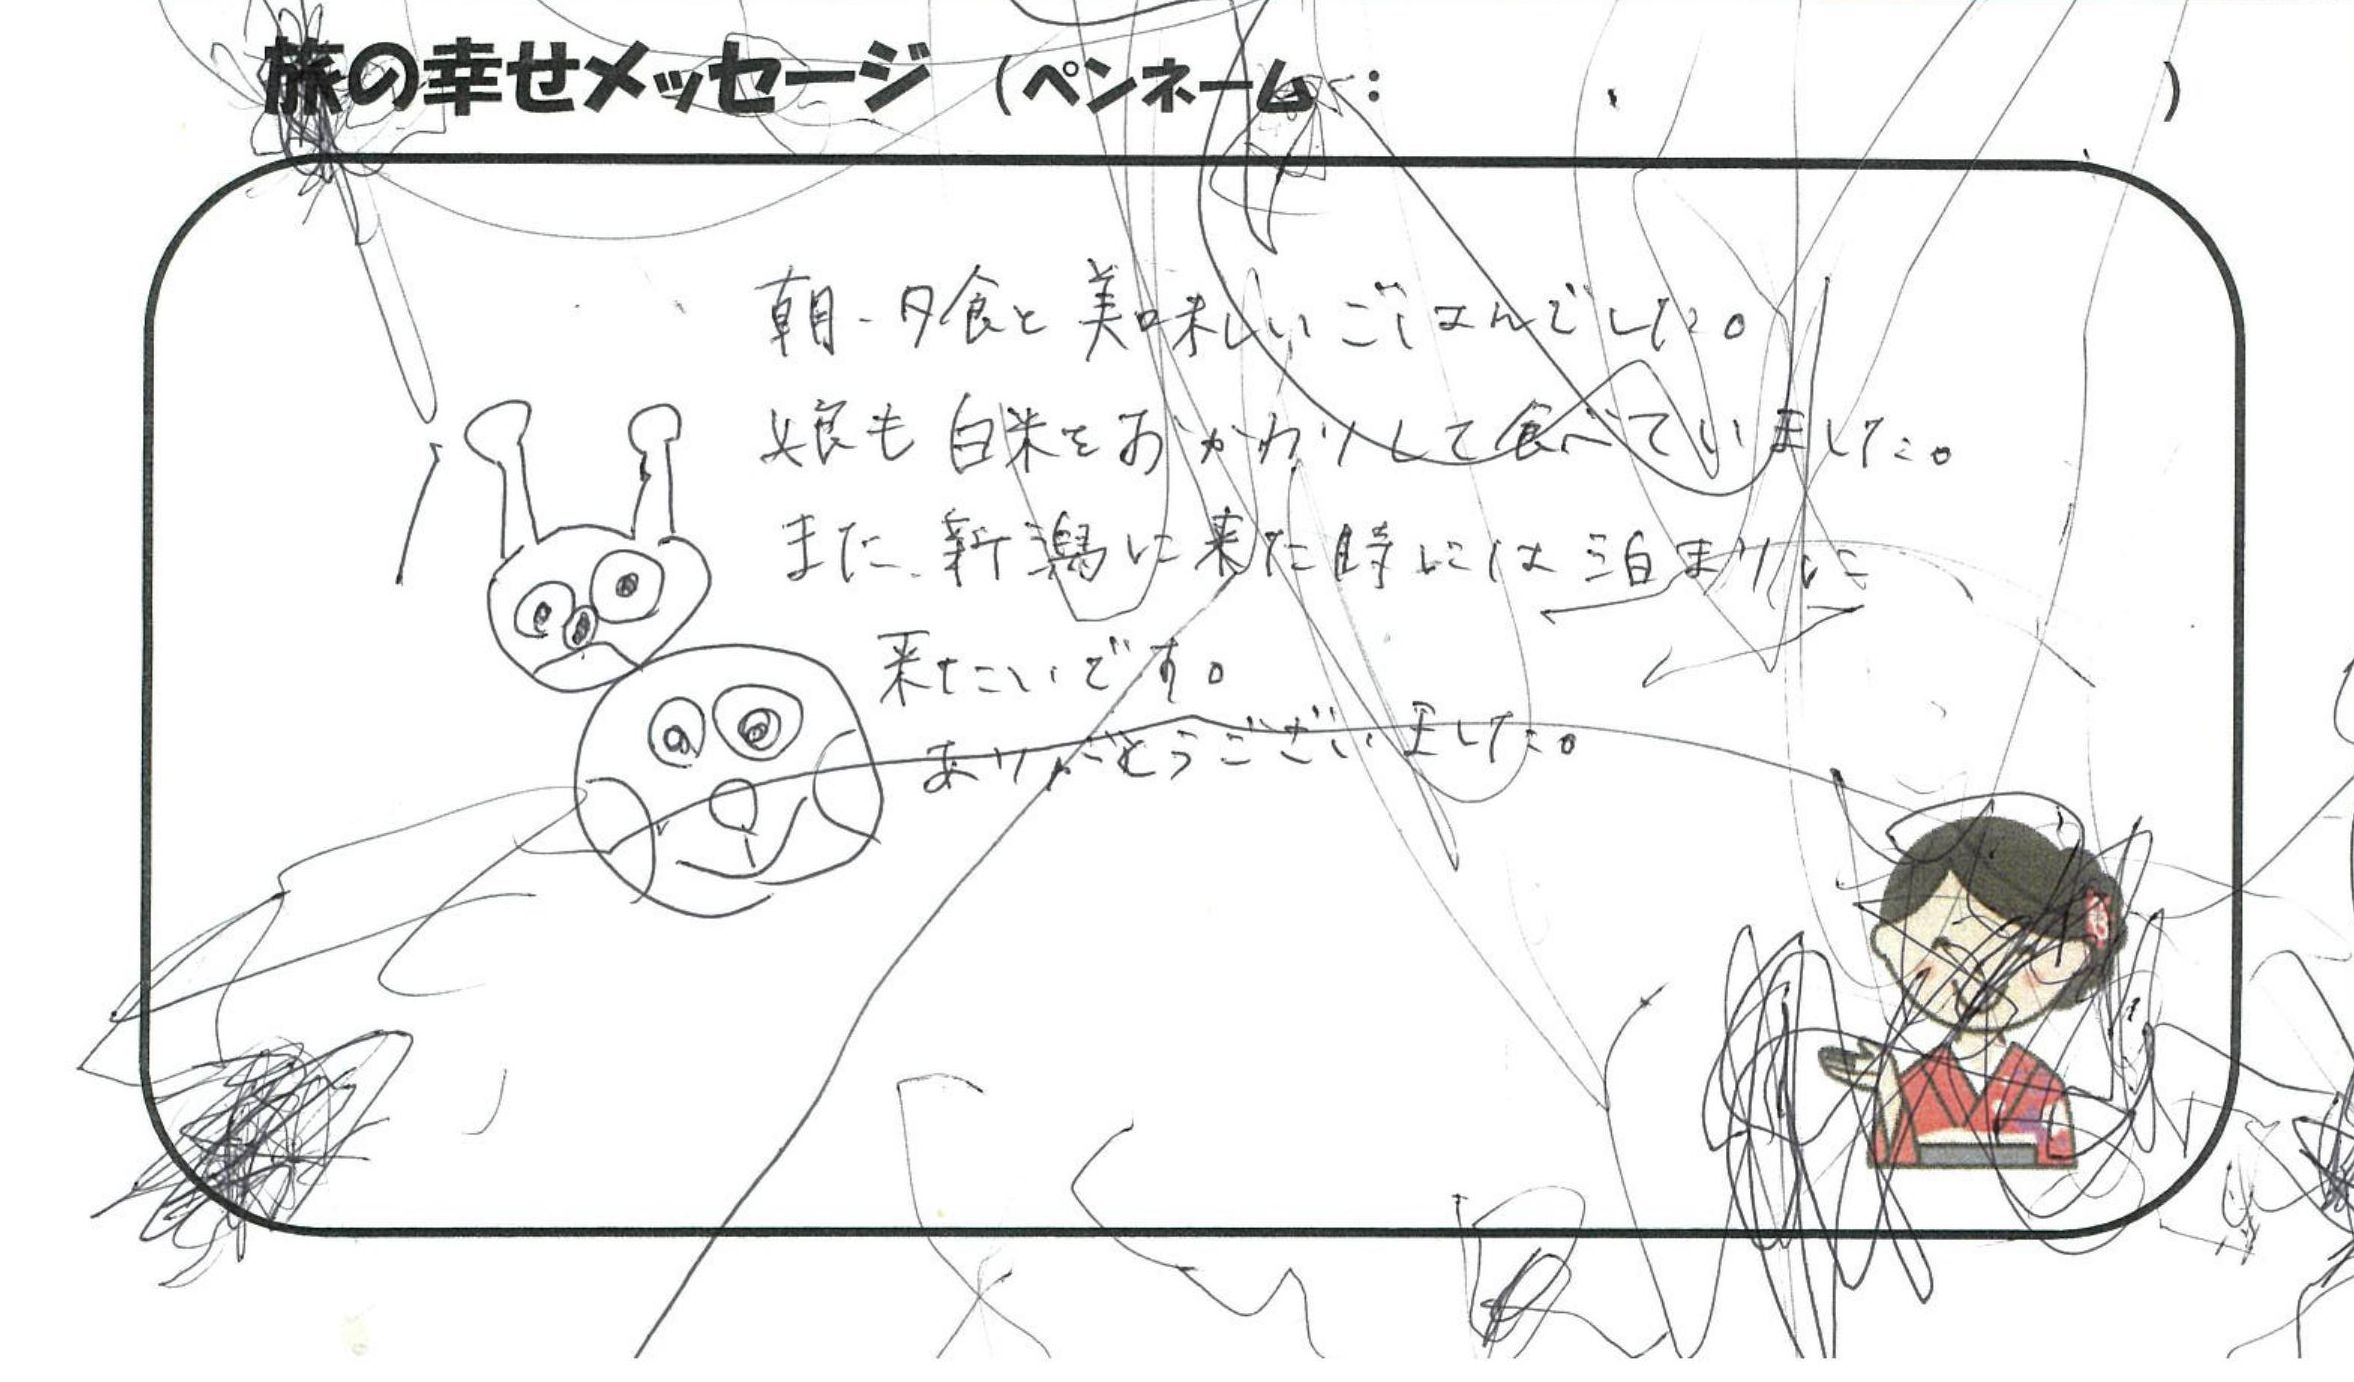 旅の幸せメッセージ (ペンネーム：　)
朝・夕食と美味しいごはんでした。
娘も白米をおかわりして食べていました。
また、新潟に来た時には泊まりに
来たいです。
ありがとうございました。